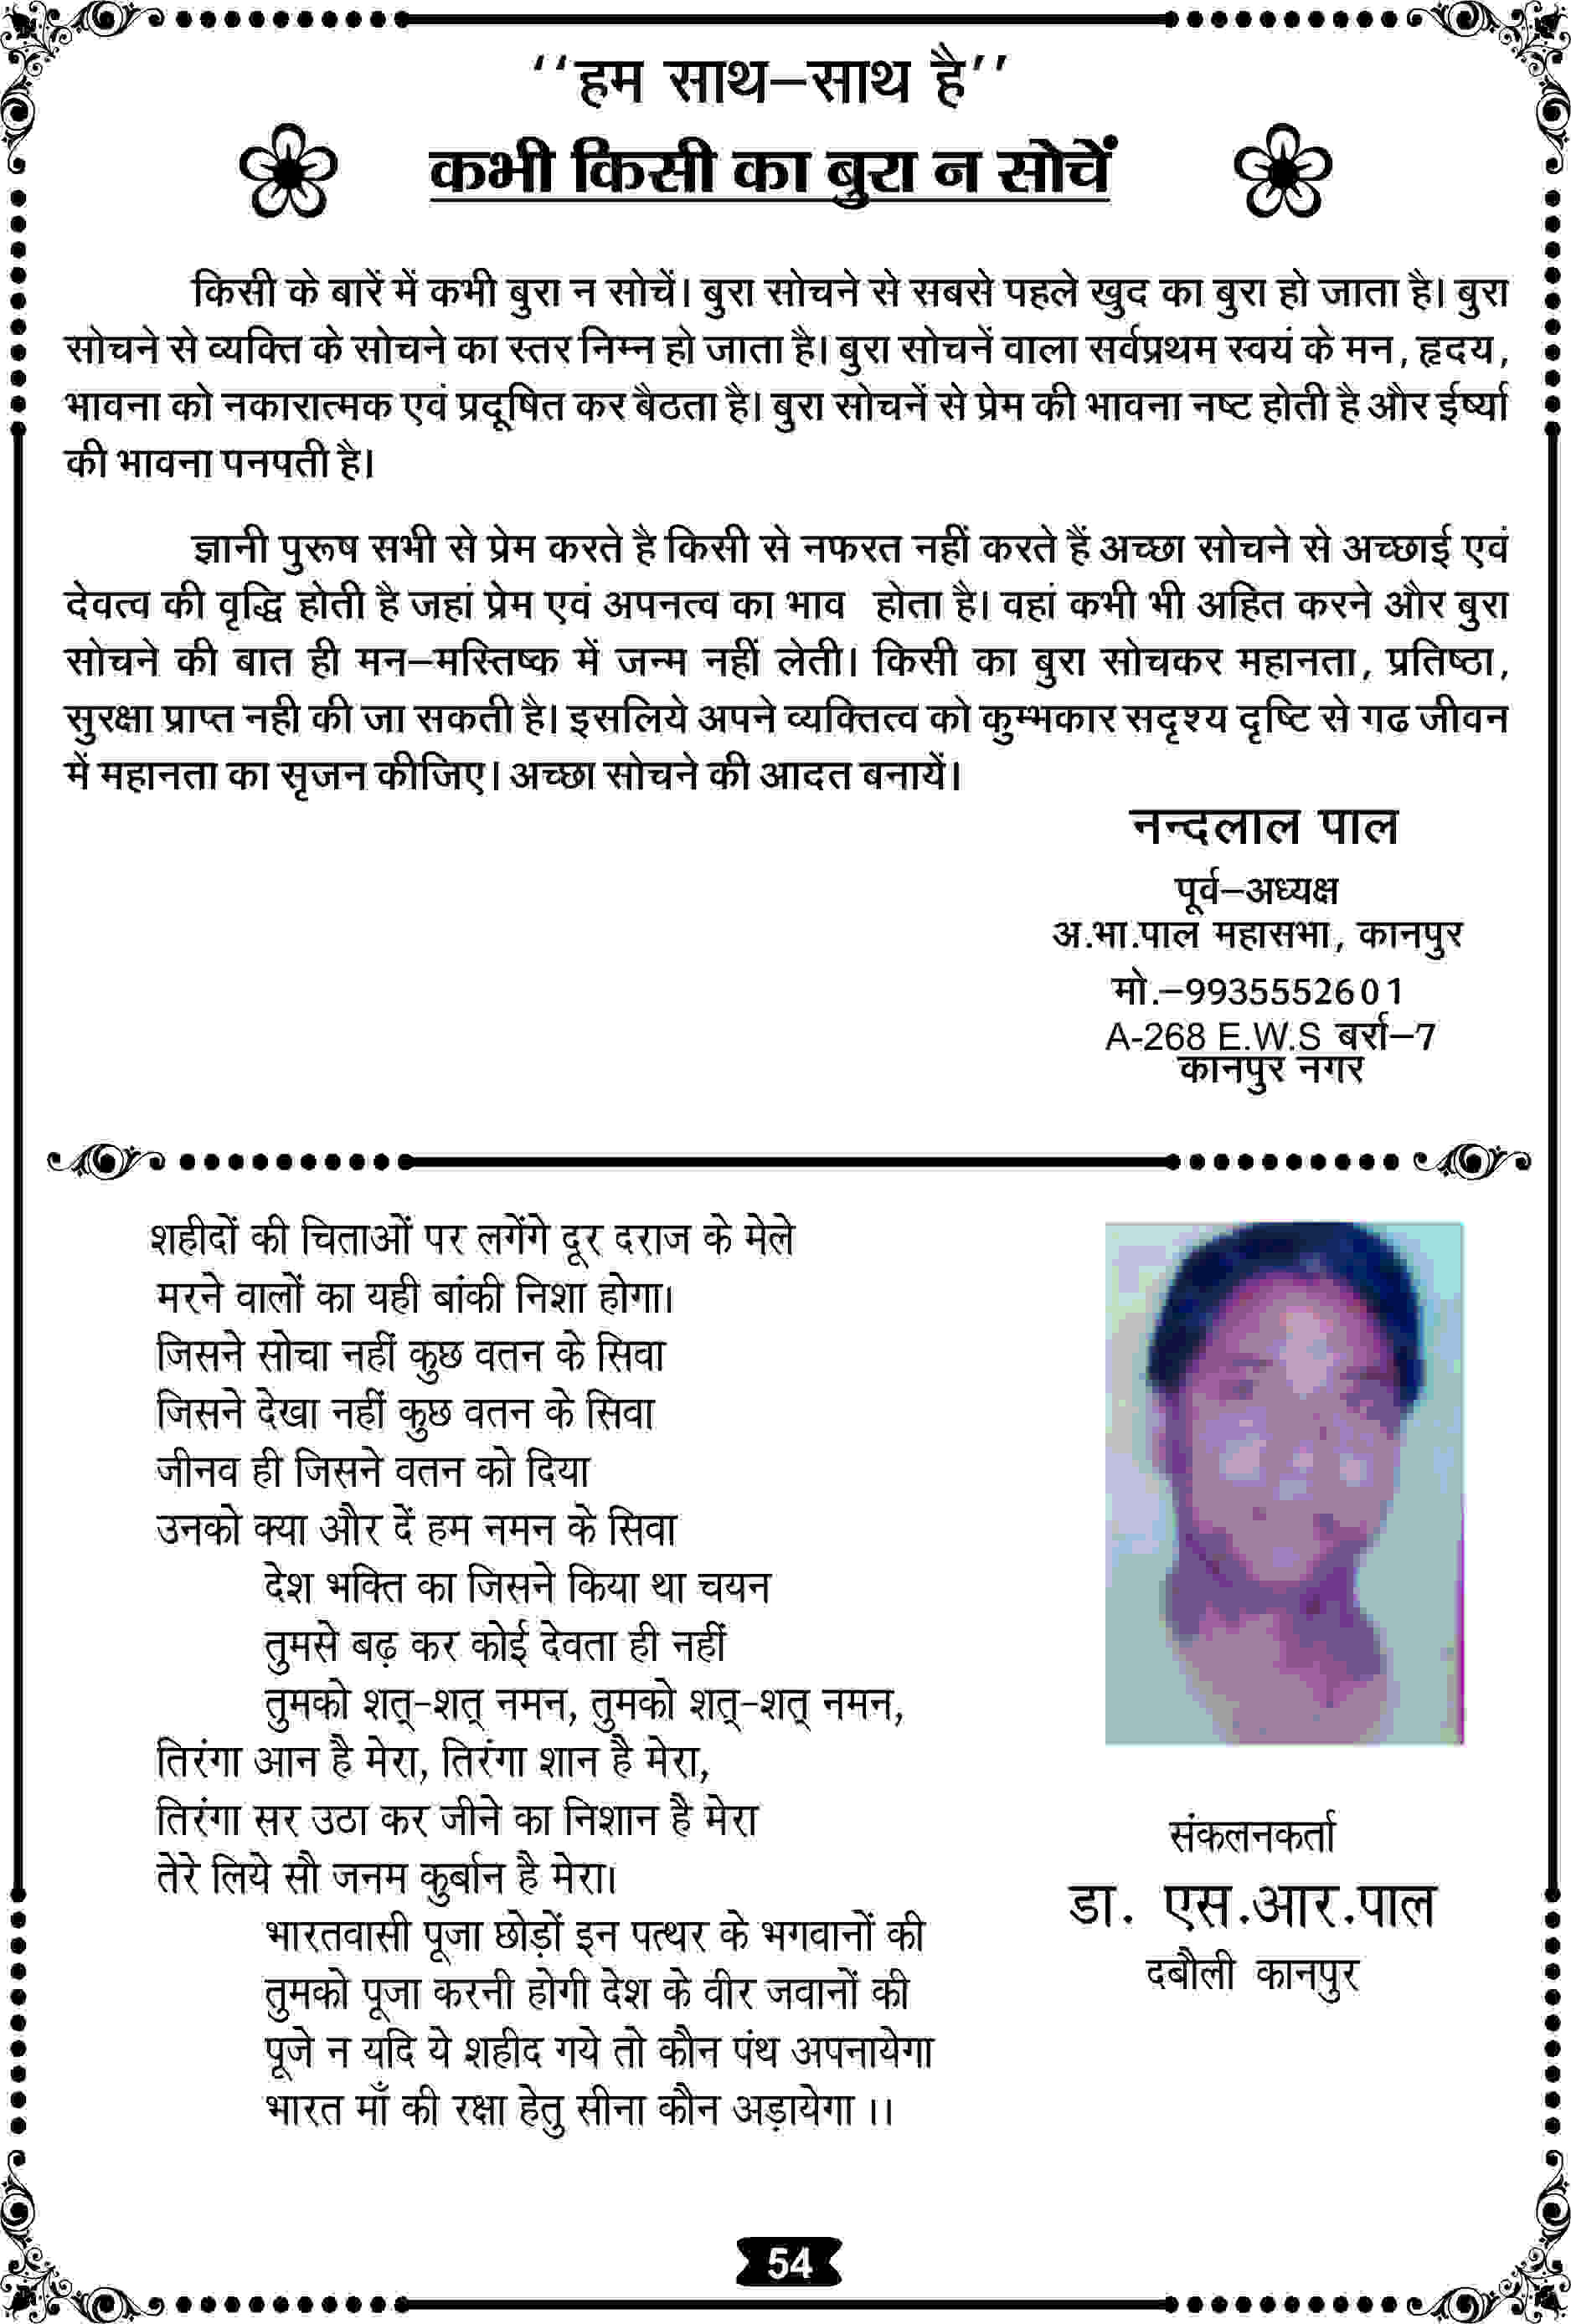 ‘‘हम साथ–साथ है’’
कभी किसी का बुरा न सोचें
किसी के बारें में कभी बुरा न सोचें। बुरा सोचने से सबसे पहले खुद का बुरा हो जाता है। बुरा
सोचने से व्यक्ति के सोचने का स्तर निम्न हो जाता है। बुरा सोचनें वाला सर्वप्रथम स्वयं के मन, हृदय,
भावना को नकारात्मक एवं प्रदूषित कर बैठता है। बुरा सोचनें से प्रेम की भावना नष्ट होती है और ईर्ष्या
की भावना पनपती है।
ज्ञानी पुरूष सभी से प्रेम करते है किसी से नफरत नहीं करते हैं अच्छा सोचने से अच्छाई एवं
देवत्व की वृद्धि होती है जहां प्रेम एवं अपनत्व का भाव होता है। वहां कभी भी अहित करने और बुरा
सोचने की बात ही मन–मस्तिष्क में जन्म नहीं लेती। किसी का बुरा सोचकर महानता, प्रतिष्ठा,
सुरक्षा प्राप्त नही की जा सकती है। इसलिये अपने व्यक्तित्व को कुम्भकार सदृश्य दृष्टि से गढ जीवन
में महानता का सृजन कीजिए। अच्छा सोचने की आदत बनायें।
नन्दलाल पाल
पूर्व–अध्यक्ष
अ.भा.पाल महासभा, कानपुर
मो.–9935552601
A-268 E.W.S बर्रा–7
कानपुर नगर
शहीदों की चिताओं पर लगेंगे दूर दराज के मेले
मरने वालों का यही बांकी निशा होगा।
जिसने सोचा नहीं कुछ वतन के सिवा
जिसने देखा नहीं कुछ वतन के सिवा
जीनव ही जिसने वतन को दिया
उनको क्या और दें हम नमन के सिवा
देश भक्ति का जिसने किया था चयन
तुमसे बढ़ कर कोई देवता ही नहीं
तुमको शत्-शत् नमन, तुमको शत्-शत् नमन,
तिरंगा आन है मेरा, तिरंगा शान है मेरा,
तिरंगा सर उठा कर जीने का निशान है मेरा
तेरे लिये सौ जनम कुर्बान है मेरा।
भारतवासी पूजा छोड़ों इन पत्थर के भगवानों की
तुमको पूजा करनी होगी देश के वीर जवानों की
पूजे न यदि ये शहीद गये तो कौन पंथ अपनायेगा
भारत माँ की रक्षा हेतु सीना कौन अड़ायेगा ।।
संकलनकर्ता
डा. एस.आर.पाल
दबौली कानपुर
54